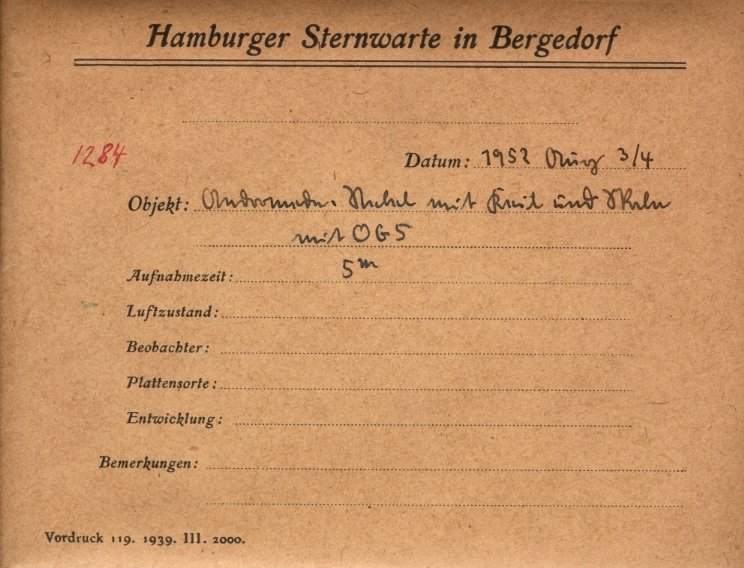 Hamburger Sternwarte in Bergedorf
1284
Datum: 1952 Aug 3/4
Objekt: Andromeda-Nebel mit Keil und Skala
mit OG5
Aufnahmezeit: 5m
Luftzustand:
Beobachter:
Plattensorte:
Entwicklung:
Bemerkungen:
Vordruck 119. 1939. III. 2000.